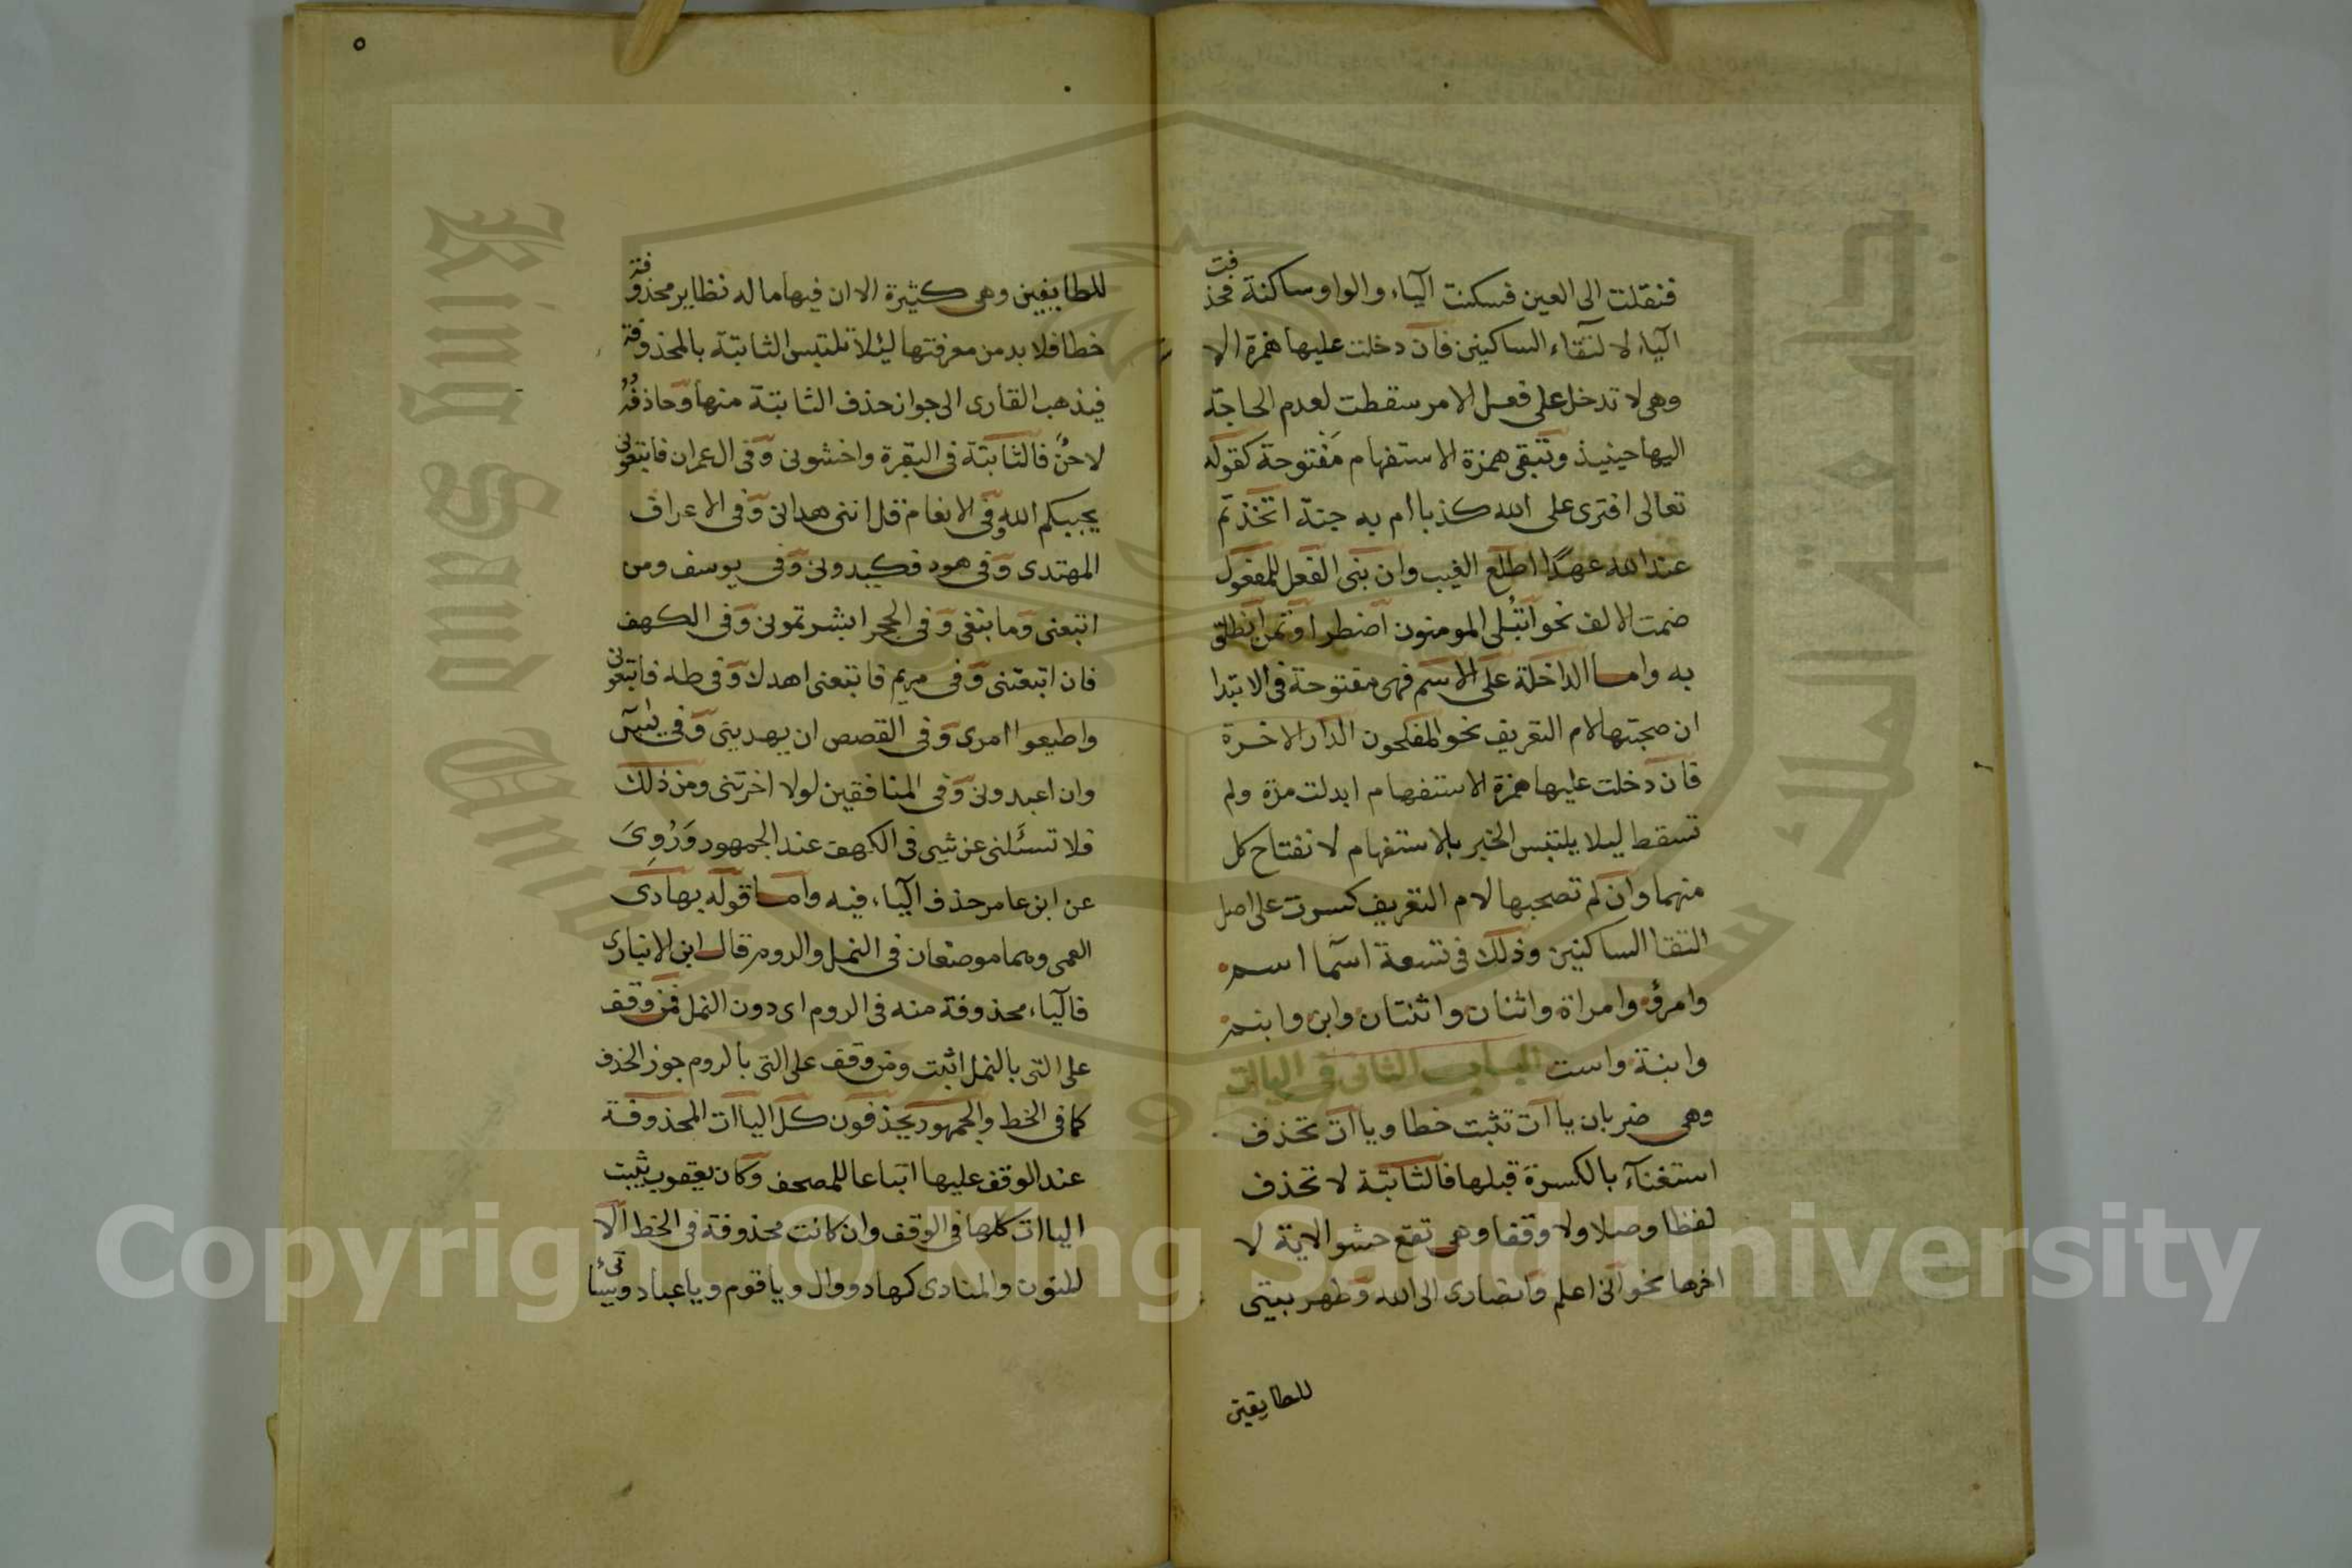 فنقلت الى العين فسكنت الياء والواو ساكنة فحذفت
الياء لالتقاء الساكنين فان دخلت عليها همزة الا
وهي لا تدخل على فعل الامر سقطت لعدم الحاجة
اليها حينيذ وتبقى همزة الاستفهام مفتوحة كقوله
تعالى افترى على الله كذبا ام به جنة اتخذتم
عند الله عهدًا اطلع الغيب وان بنى الفعل للمفعول
ضمت الالف نحو ابتُلى المومنون اضطر اوتمن انطلق
به واما الداخلة على الاسم فهى مفتوحة فى الابتدا
ان صحبتها لام التعريف نحو المفلحون الدار الاخرة
فان دخلت عليها همزة الاستفهام ابدلت مدة ولم
تسقط ليلا يلتبس الخبر بالاستفهام لانفتاح كل
منهما وان لم تصحبها لام التعريف كسرت على اصل
التقا الساكنين وذلك فى تسعة اسما اسم
وامرؤ وامراة واثنان واثنتان وابن وابنم
وابنة واست الباب الثانى فى الياات
وهى ضربان ياات تثبت خطا وياات تحذف
استغناء بالكسرة قبلها فالثابتة لا تحذف
لفظا وصلا ولا وقفا وهى تقع حشو الاية لا
اخرها نحو انى اعلم وانصارى الى الله وطهر بيتى
للطايفين
٥
للطايفين وهى كثيرة الا ان فيها ما له نظاير محذوفة
خطا فلا بد من معرفتها ليئلا تلتبس الثابتة بالمحذوفة
فيذهب القارى الى جواز حذف الثابتة منها وحاذفُهُ
لاحنٌ فالثابتة فى البقرة واخشونى وفى ال عمران فاتبعونى
يحببكم الله وفى الانعام قل اننى هدانى وفى الاعراف
المهتدى وفى هود فكيدونى وفى يوسف ومن
اتبعنى وما نبغى وفى الحجر ابشرتمونى وفى الكهف
فان اتبعتنى وفى مريم فاتبعنى اهدك وفى طه فاتبعونى
واطيعوا امرى وفى القصص ان يهدينى وفى يس
وان اعبدونى وفى المنافقين لولا اخرتنى ومن ذلك
فلا تسئَلنى عن شيى فى الكهف عند الجمهور وَرُوِىَ
عن ابن عامر حذف الياء فيه واما قوله بهادى
العمى وهما موضعان فى النمل والروم قال ابن الانبارى
فالياء محذوفة منه فى الروم اى دون النمل فمن وقف
على التى بالنمل اثبت ومن وقف على التى بالروم جوز الحذف
كما فى الخط والجمهور يحذفون كل الياات المحذوفة
عند الوقف عليها اتباعا للمصحف وكان يعقوب يثبت
الياات كلها فى الوقف وان كانت محذوفة فى الخط الا
للنون والمنادى كهاد ووال ويا قوم ويا عباد
King Saud
جامعة الملك سعود
1957
Copyright © King Saud University